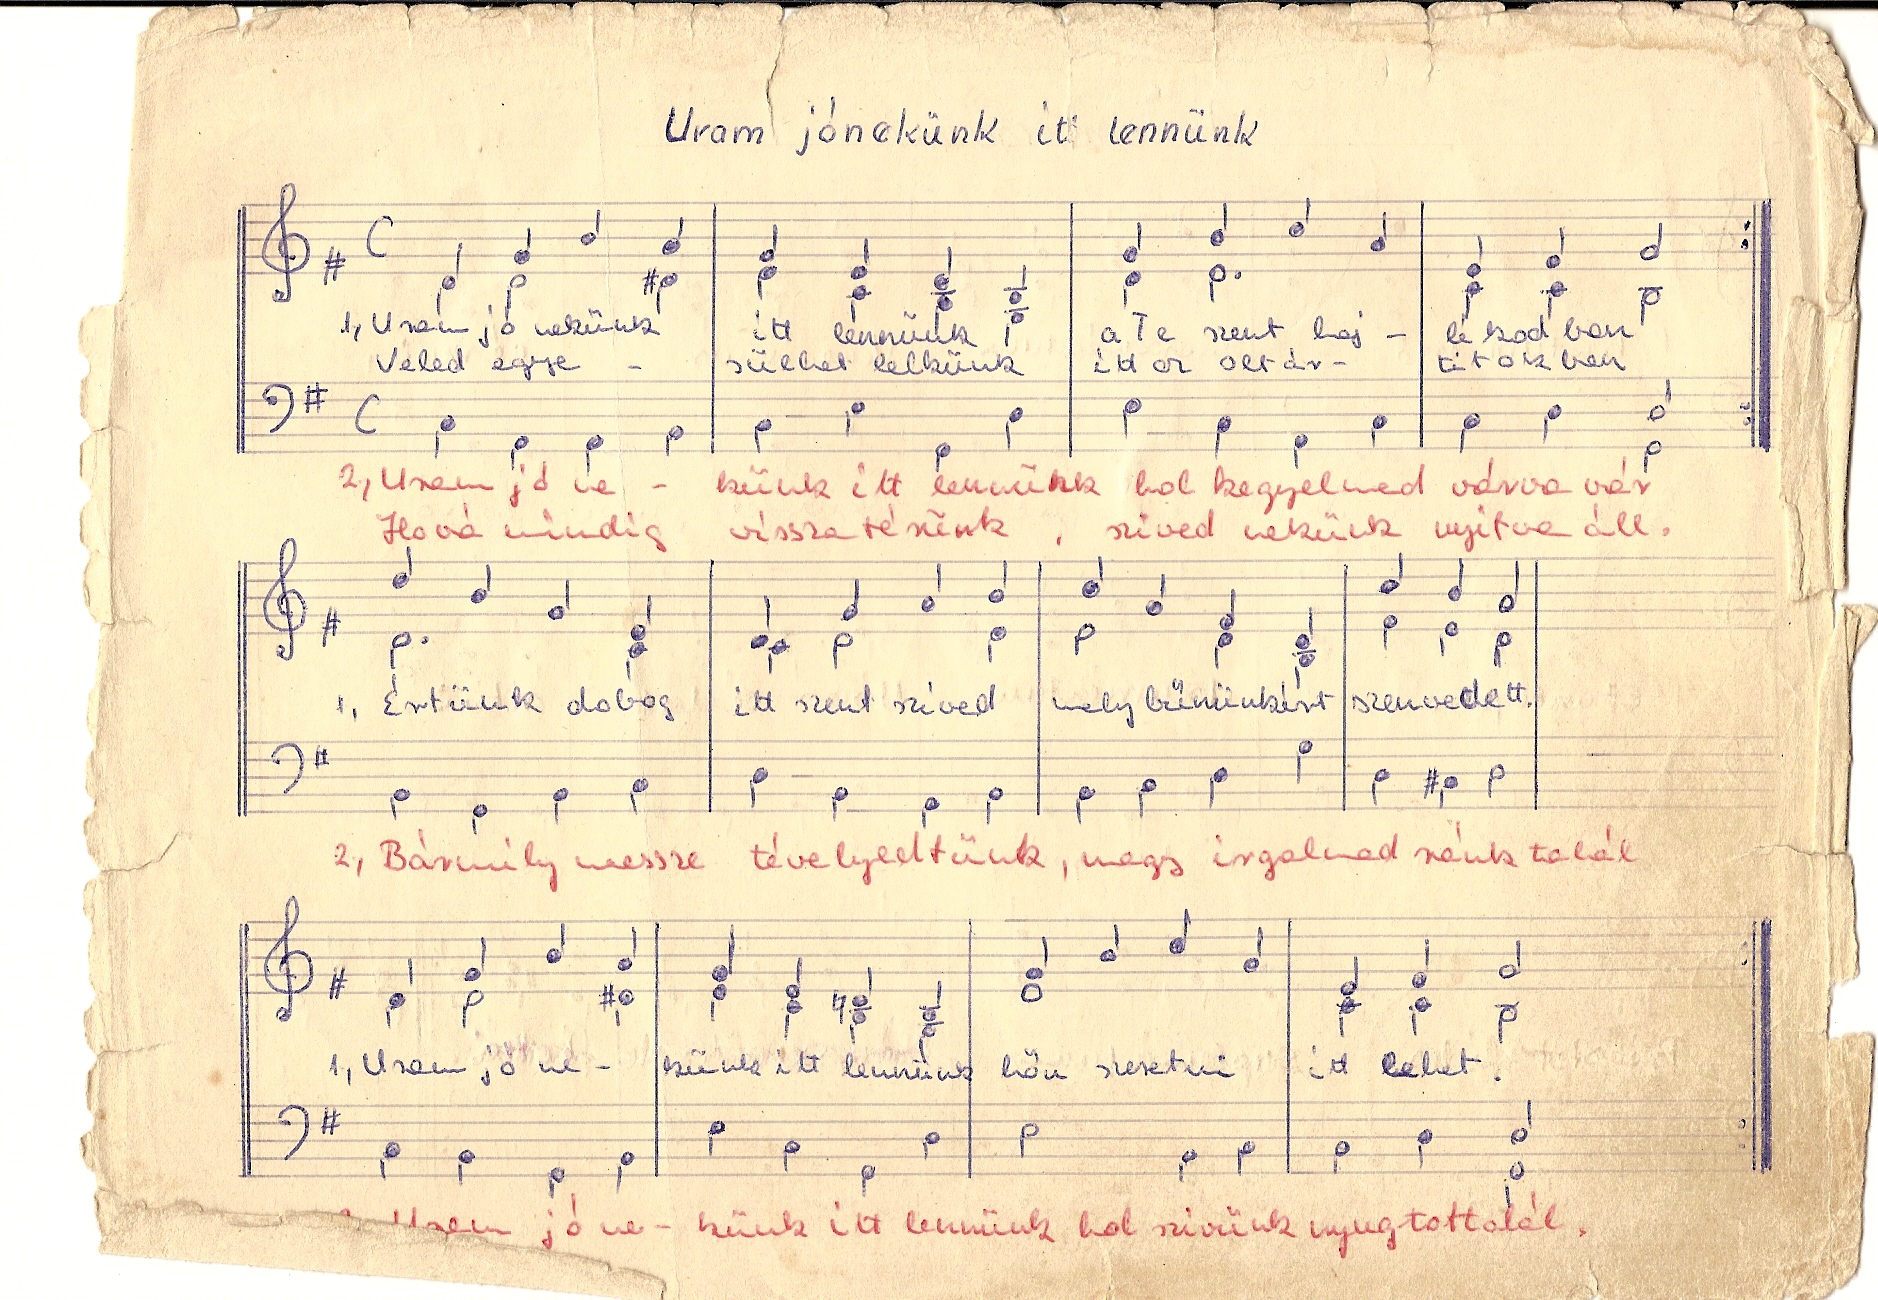 Uram jónekünk itt lennünk
1, Uram jó nekünk itt lennünk a Te szent haj - lé kod ban
Veled egye - sülhet lelkünk itt az oltár - titokban
2, Uram jó ne - künk itt lennünk hol kegyelmed várva vár
Hová mindig visszatérünk, szived nekünk nyitva áll.
1, Értünk dobog itt szent szived mely bűnünkért szenvedett.
2, Bármily messze tévelyedtünk, mégis irgalmad ránk talál
1, Uram jó ne - künk itt lennünk hőn szeretni itt lehet.
Uram jó ne - künk itt lennünk hol szivünk nyugtottalál.